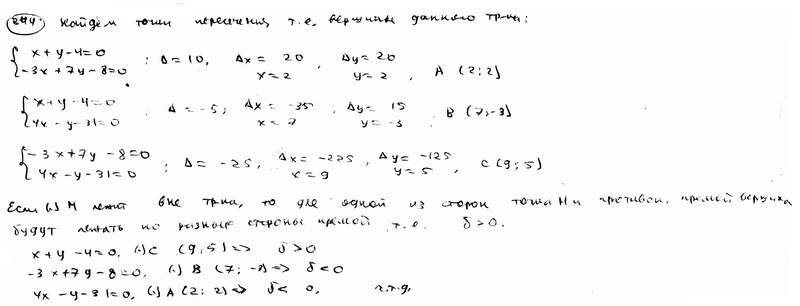 244. Найдём точки пересечения, т.е. вершины данного тр-ка:
{ x + y - 4 = 0
{ -3x + 7y - 8 = 0 : Δ = 10, Δx = 20, x = 2, Δy = 20, y = 2, A (2; 2)
{ x + y - 4 = 0
{ 4x - y - 31 = 0 : Δ = -5; Δx = -35, x = 7; Δy = 15, y = -3. B (7; -3)
{ -3x + 7y - 8 = 0
{ 4x - y - 31 = 0 ; Δ = -25, Δx = -225, x = 9, Δy = -125, y = 5, C (9; 5)
Если (·) M лежит вне тр-ка, то для одной из сторон точка M и противоп. прямой вершина
будут лежать по разные стороны прямой т.е. δ>0.
x + y - 4 = 0, (·) C (9; 5) => δ > 0
-3x + 7y - 8 = 0, (·) B (7; -3) => δ < 0
4x - y - 31 = 0, (·) A (2; 2) => δ < 0, ч.т.д.